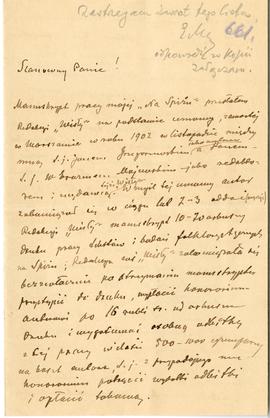 Zastrzegam zwrot tego listu,
661.
odpowiedź w kopii
załączam.
Szanowny Panie!
Manuskrypt pracy mojej „Na Spiżu" przesłałem
Redakcji „Wisły" na podstawie umowy, zawartej
w Warszawie w roku 1902 w listopadzie między
mną, t. j. Janem Grzegorzewskim, a Panem
t. j. Erazmem Majewskim jako redaktorem
i wydawcą „Wisły". W myśl tej umowy autor
zobowiązał się w ciągu lat 2-3 oddać
Redakcji „Wisły" manuskrypt 10-20 arkuszy
druku pracy tekstów i badań folklorystycznych
na Spiżu; Redakcja zaś „Wisły" zobowiązała się
bezzwłocznie po otrzymaniu manuskryptu
przystąpić do druku, wypłacić honorarium
autorowi po 16 rubli sr. od arkusza
druku i wygotować osobną odbitkę
z tej pracy w ilości 500- egzemplarzy
na koszt autora, t. j. z przypadającego mu
honorarium potrącić wydatki odbitki
i opłacić